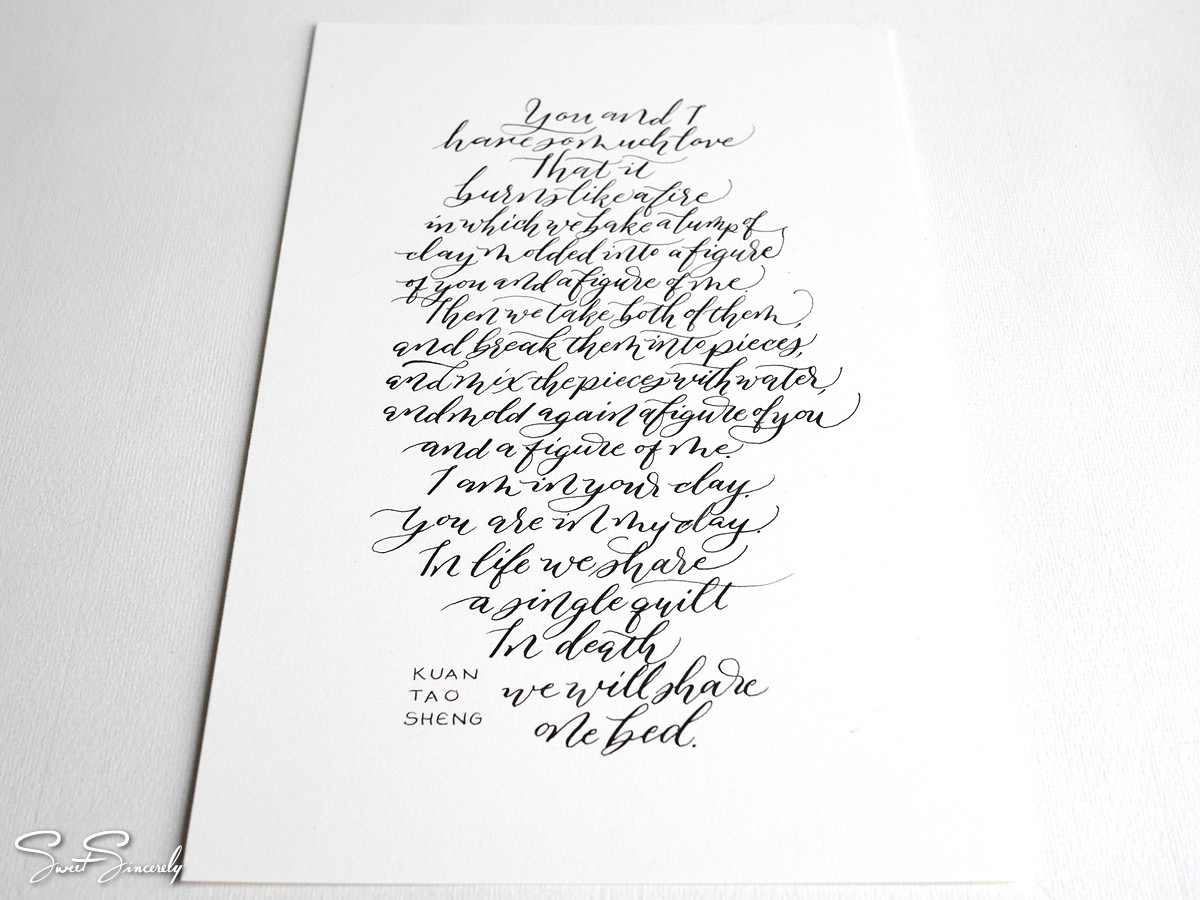 You and I
have so much love
That it
burns like a fire
in which we bake a lump of
clay molded into a figure
of you and a figure of me.
Then we take both of them,
and break them into pieces,
and mix the pieces with water,
and mold again a figure of you
and a figure of me.
I am in your clay.
You are in my clay.
In life we share
a single quilt
In death
we will share
one bed.
KUAN
TAO
SHENG
Sweet Sincerely